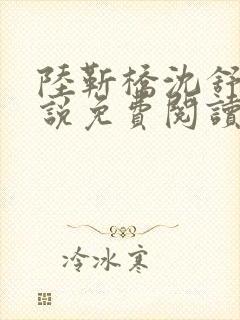 陸靳橋沈舒
說免費閱讀
冷冰寒